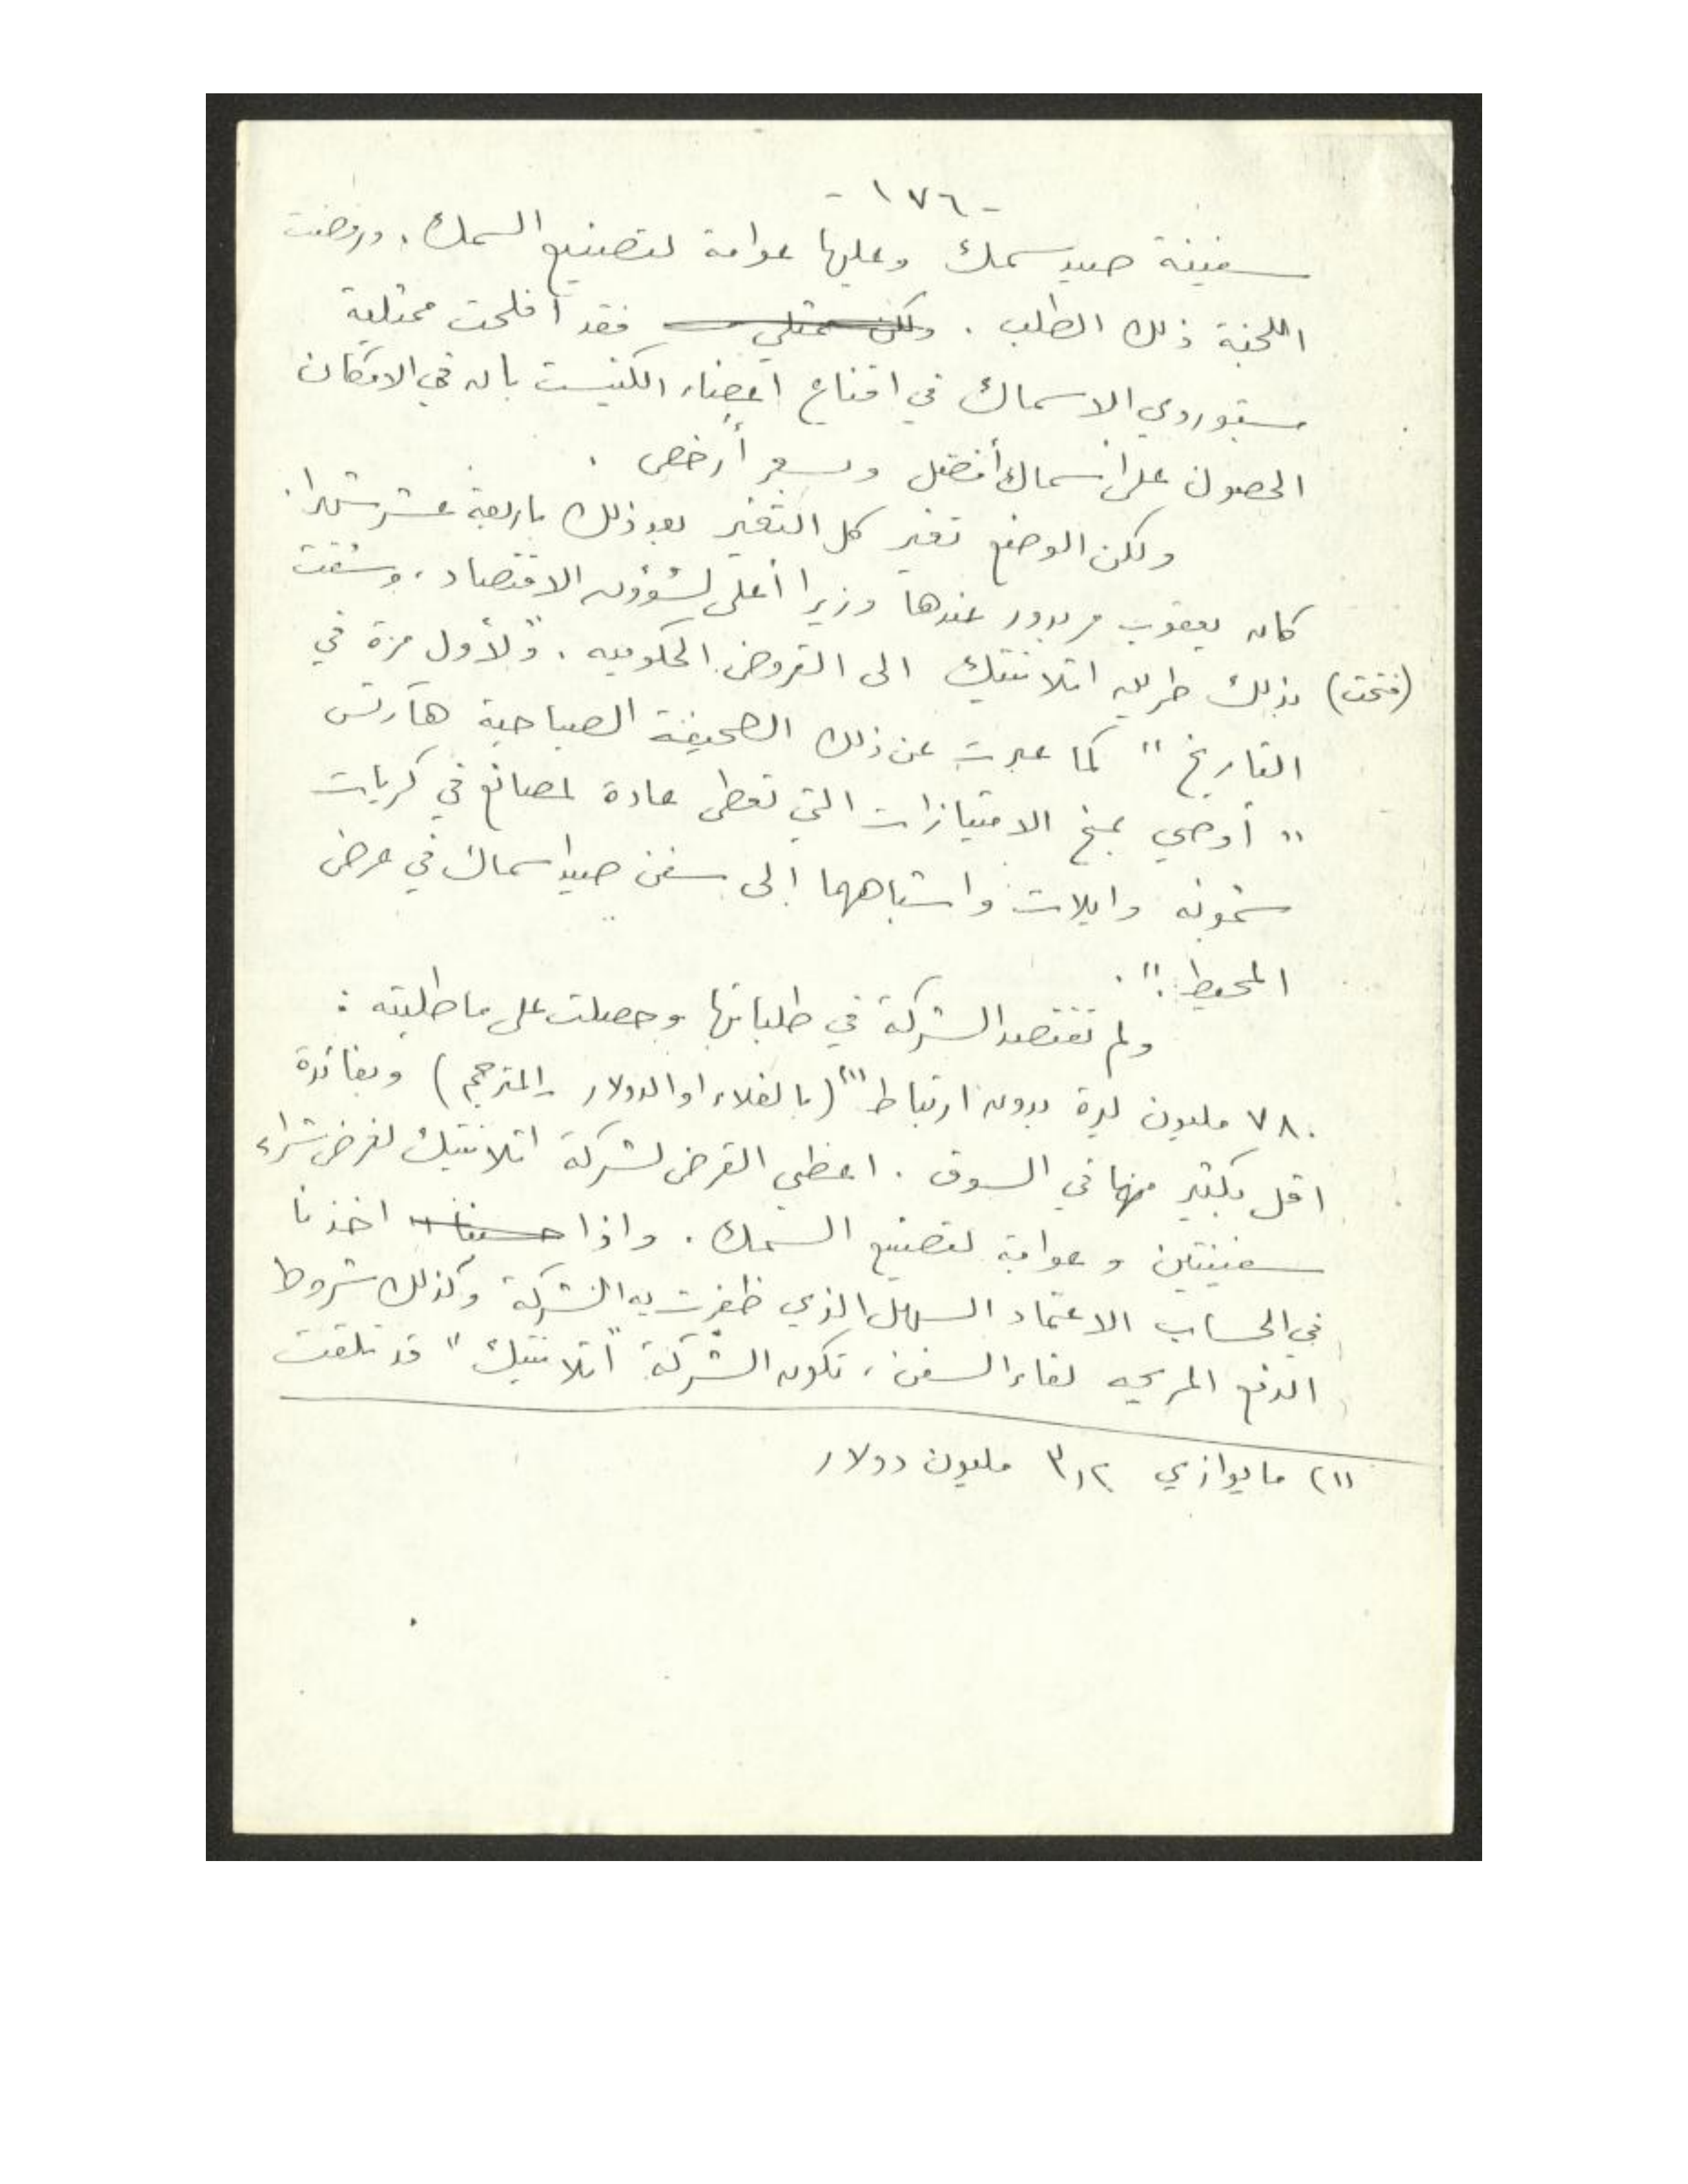 - ١٧٦ -
سفينة صيد سمك وعليها عوامة لتصنيع السمك، ورفضت
اللجنة ذلك الطلب . ولكن ممثلي فقد أفلحت ممثلية
مستوردي الاسماك في اقناع أعضاء الكنيست بانه في الامكان
الحصول على أسماك أفضل وبسعر أرخص .
ولكن الوضع تغير كل التغير بعد ذلك باربعة عشر شهرا.
كان يعقوب مريدور عندها وزيرا أعلى لشؤون الاقتصاد، وشقت
(فتحت) بذلك طريق اتلانتيك الى القروض الحكومية . "ولأول مرة في
التاريخ" كما عبرت عن ذلك الصحيفة الصباحية هآرتس
" أوصي بمنح الامتيازات التي تعطى عادة لمصانع في كريات
شمونه وايلات واشباههما إلى سفن صيد اسماك في عرض
المحيط" .
ولم تقتصد الشركة في طلباتها وحصلت على ما طلبته :
٧٨٠ مليون ليرة بدون ارتباط (١) (بالغلاء او الدولار - المترجم) وبفائدة
اقل بكثير منها في السوق . اعطي القرض لشركة اتلانتيك لغرض شراء
سفينتين وعوامة لتصنيع السمك . واذا حسبنا اخذنا
في الحساب الاعتماد السهل الذي ظفرت به الشركة وكذلك شروط
الدفع المريحه لقاء السفن، تكون الشركة "اتلانتيك" قد تلقت
(١) ما يوازي ٣,٢ مليون دولار